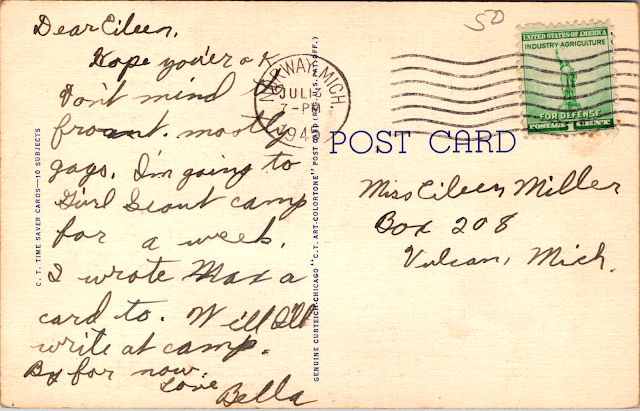 50
Dear Eileen,
Hope you're o k
Don't mind t
front. mostly
gags. I'm going to
Girl Scout camp
for a week.
I wrote Max a
card to. Well I'll
write at camp.
By for now.
Love
Bella
C. T. TIME SAVER CARDS—10 SUBJECTS
GENUINE CURTEICH-CHICAGO "C. T. ART-COLORTONE" POST CARD (REG. U.S. PAT. OFF.)
NORWAY, MICH.
JUL 13
7-PM
194
UNITED STATES OF AMERICA
INDUSTRY·AGRICULTURE
FOR DEFENSE
POSTAGE 1 CENT
POST CARD
Miss Eileen Miller
Box 208
Vulcan, Mich.